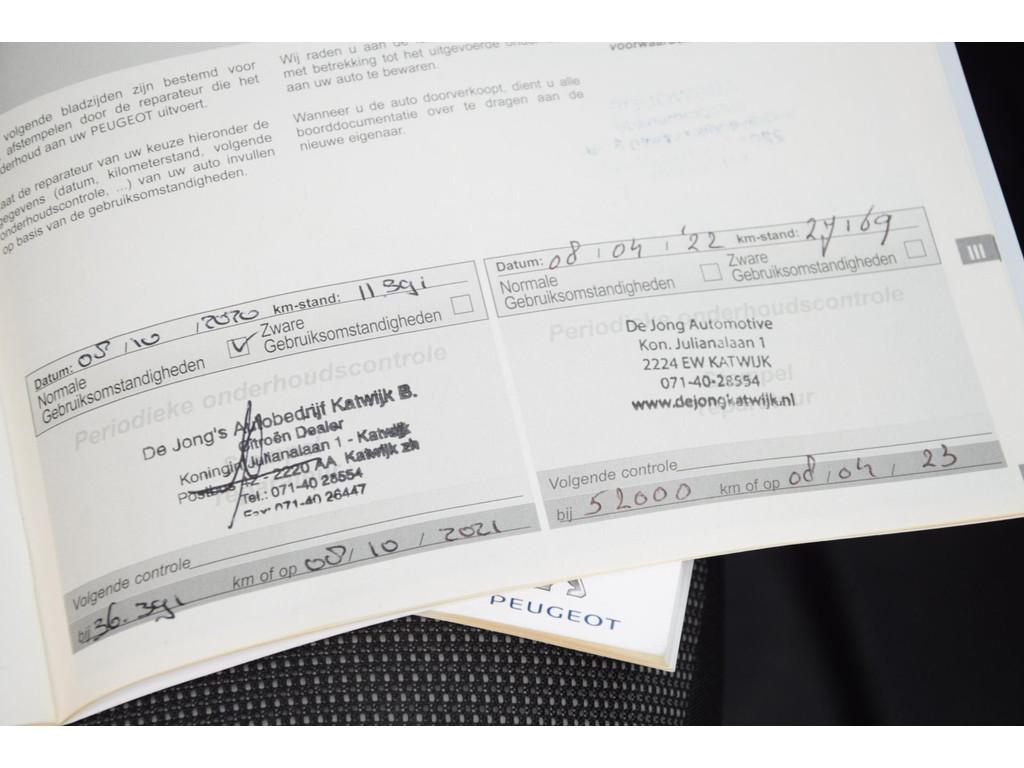 volgende bladzijden zijn bestemd voor
afstempelen door de reparateur die het
derhoud aan uw PEUGEOT uitvoert.
aat de reparateur van uw keuze hieronder de
gegevens (datum, kilometerstand, volgende
onderhoudscontrole, ...) van uw auto invullen
op basis van de gebruiksomstandigheden.
Wij raden u aan de
met betrekking tot het uitgevoerde
aan uw auto te bewaren.
Wanneer u de auto doorverkoopt, dient u alle
boorddocumentatie over te dragen aan de
nieuwe eigenaar.
III
Datum: 08 / 10 / 2020 km-stand: 11.391
Normale
Gebruiksomstandigheden
Zware
Gebruiksomstandigheden
Periodieke onderhoudscontrole
De Jong's Autobedrijf Katwijk B.
Citroën Dealer
Koningin Julianalaan 1 - Katwijk
Postbus 12 - 2220 AA Katwijk zh
Tel.: 071-40 28554
Fax: 071-40 26447
Volgende controle
bij 36.391 km of op 08 / 10 / 2021
Datum: 08 / 04 / '22 km-stand: 27169
Normale
Gebruiksomstandigheden
Zware
Gebruiksomstandigheden
Periodieke onderhoudscontrole
De Jong Automotive
Kon. Julianalaan 1
2224 EW KATWIJK
071-40-28554
www.dejongkatwijk.nl
Volgende controle
bij 52000 km of op 08 / 04 / 23
PEUGEOT